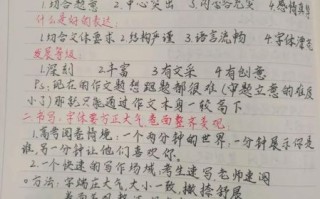 1.切合题意 2.中心突出 3.内容充充实 4.感情真
什么是好的表达:
1.切合文体要求 2.结构严谨 3.语言流畅 4.字体漂
发展等级:
1.深刻 2.丰富 3.有文采 4.有创意
Ps:现在的作文题想跑题都很难(审题立意的难度
小)那就只能通过作文本身一较高下
二.书写:字体要方正大气 卷面整齐
1.高考阅卷情境:一个两分钟的世界,一分钟展示你是
谁,另一分钟让他们喜欢你。
2.一个快速的写作场域,考生速写 老师速阅
方法:字端正大气,大小一致,撇捺舒展